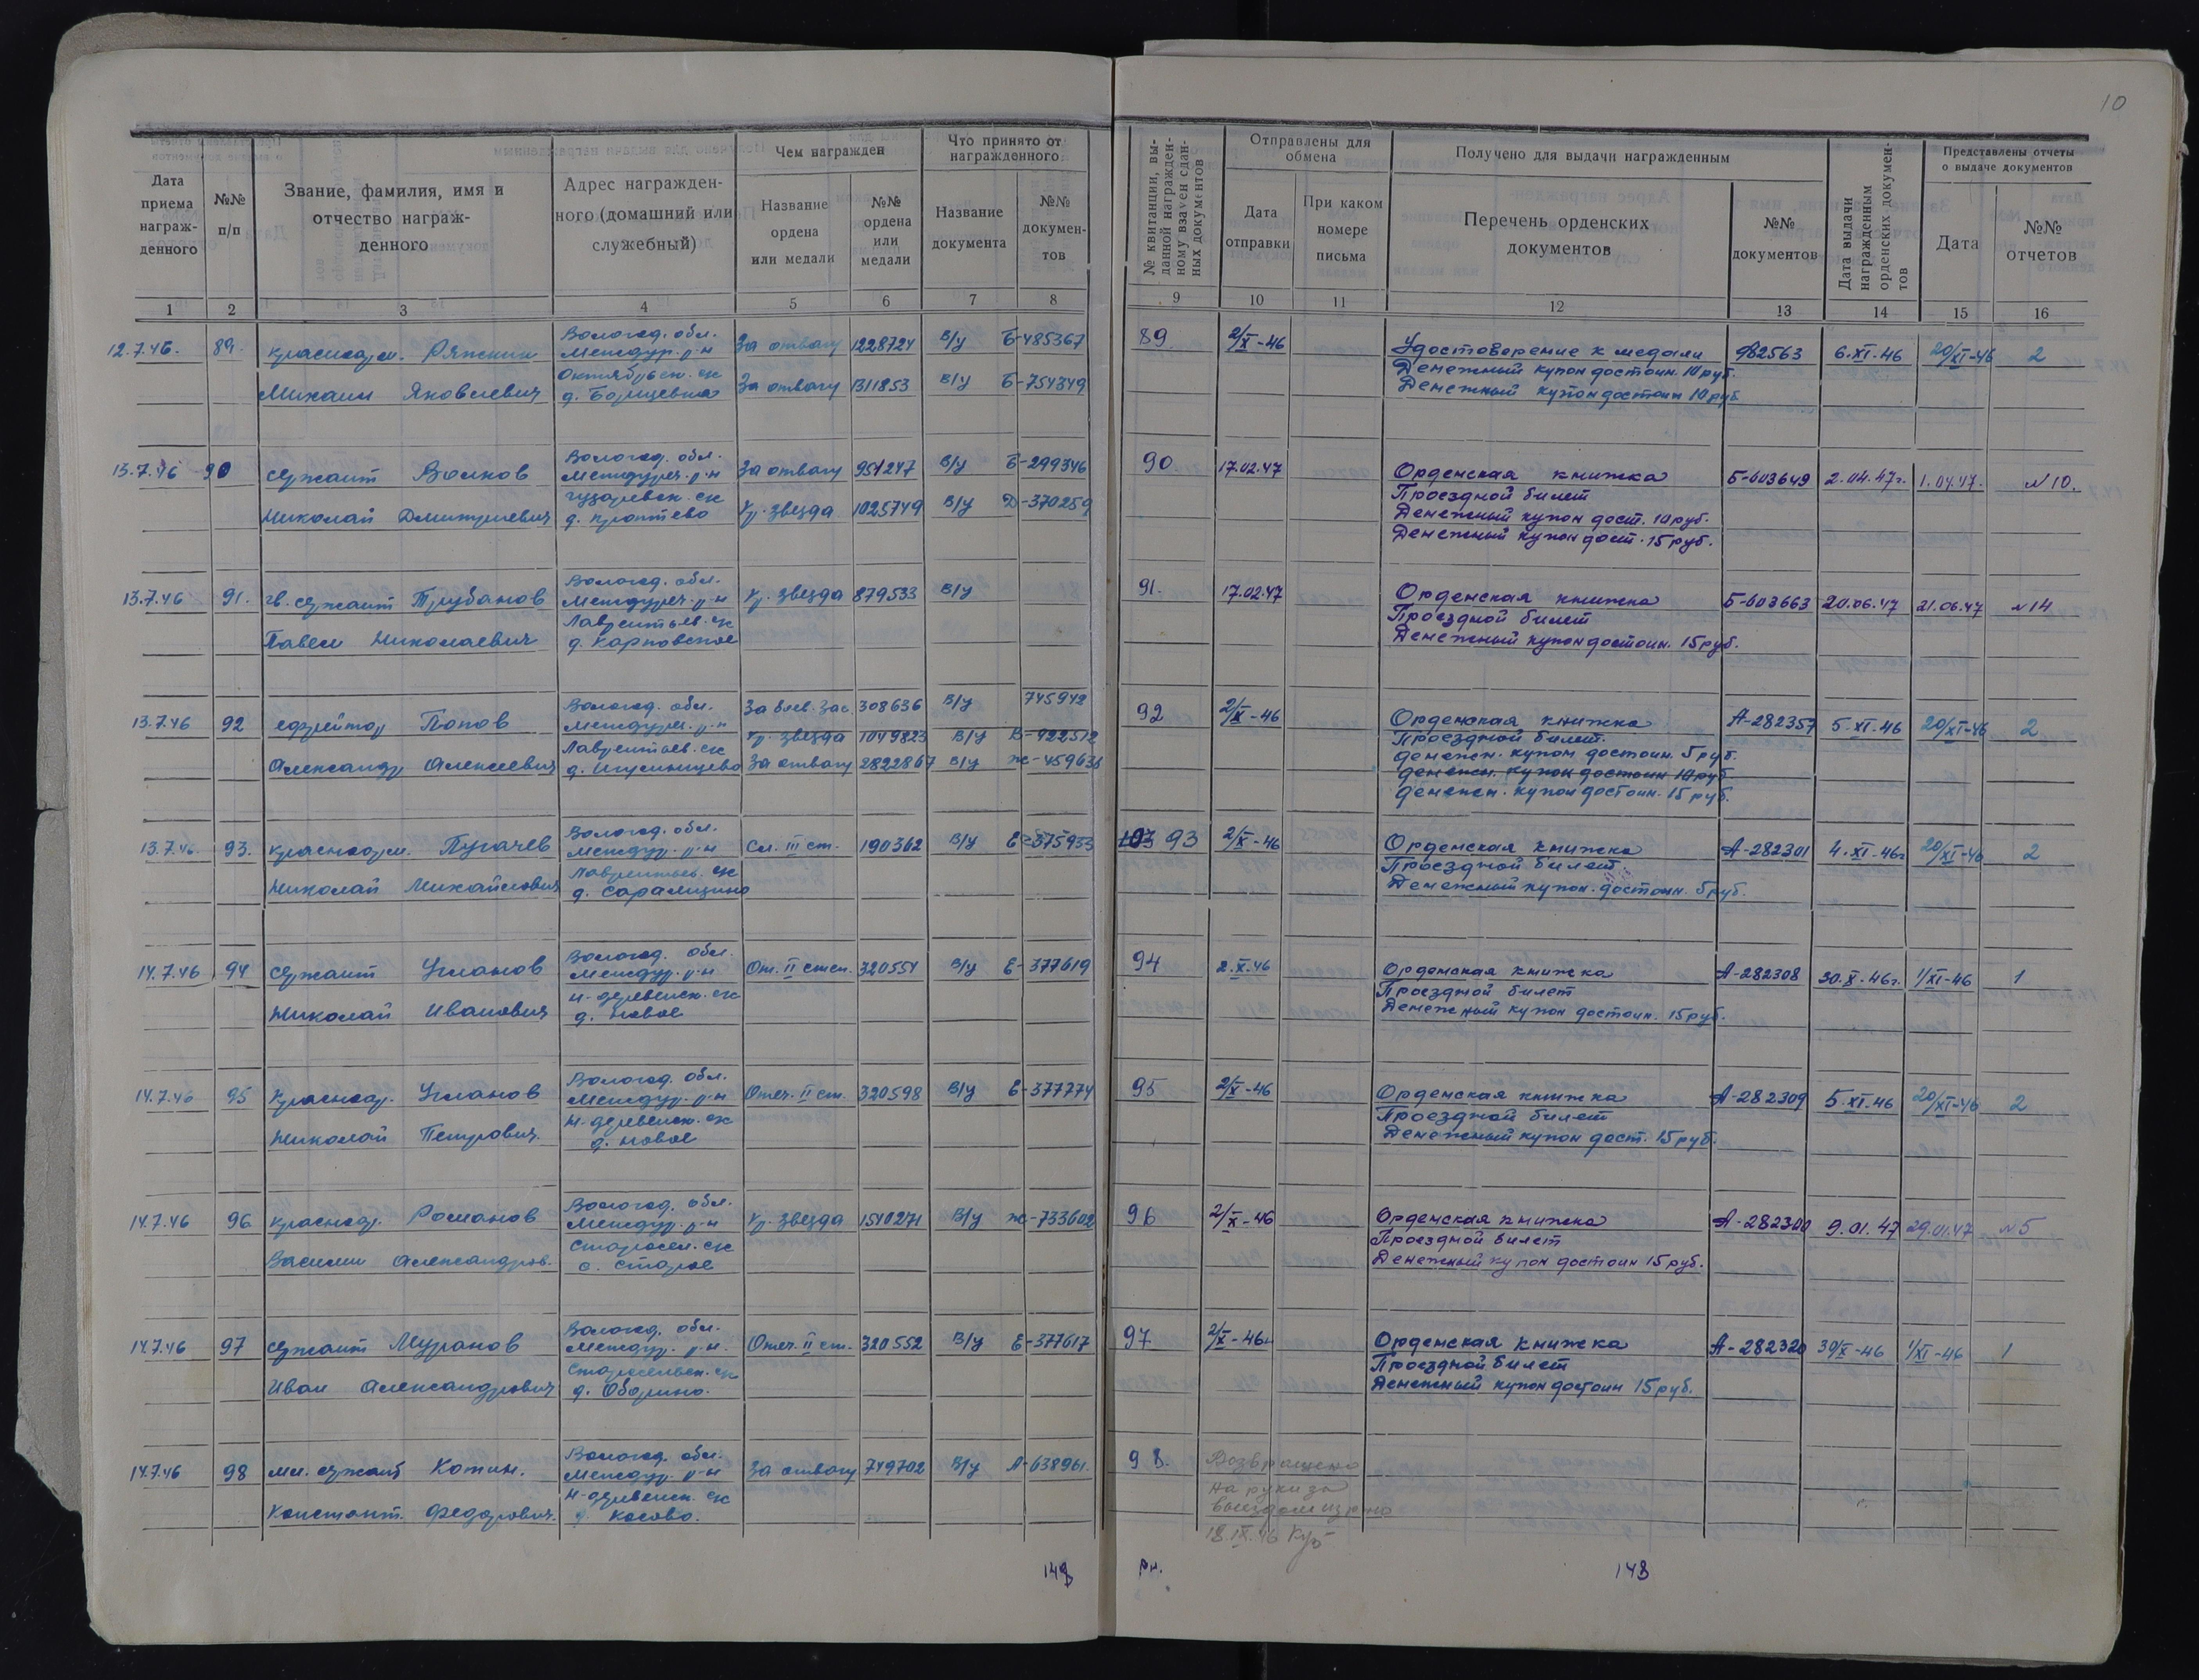 10
Дата приема награж-денного
№№ п/п
Звание, фамилия, имя и отчество награж-денного
Адрес награжден-ного (домашний или служебный)
Чем награжден
Название ордена или медали
№№ ордена или медали
Что принято от награжденного
Название документа
№№ докумен-тов
№ квитанции, вы-данной награжден-ному взамен сдан-ных документов
Отправлены для обмена
Дата отправки
При каком номере письма
Получено для выдачи награжденным
Перечень орденских документов
№№ документов
Дата выдачи награжденным орденских документов
Представлены отчеты о выдаче документов
Дата
№№ отчетов
1 2 3 4 5 6 7 8 9 10 11 12 13 14 15 16
12.7.46. 89. красноарм. Ряпкин Вологод. обл. За отвагу 1228724 в/у Б-485367 89 2/X-46 Удостоверение к медали 982563 6.XI.46 20/XI-46 2
Междур. р-н Денежный купон достоин. 10 руб.
Михаил Яковлевич Октябрьск. с/с За отвагу 1311853 в/у Б-754349 Денежный купон достоин 10 руб.
13.7.46 90 сержант Волков Вологод. обл. За отвагу 951247 в/у Б-299346 90 17.02.47 Орденская книжка Б-603649 2.04.47г. 1.04.47. №10.
Междуреч. р-н Проездной билет
Николай Дмитриевич Кр. звезда 1025749 в/у Д-370259 Денежный купон дост. 10 руб.
Денежный купон дост. 15 руб.
13.7.46 91. гв. сержант Трубанов Вологод. обл. Кр. звезда 879533 в/у 91. 17.02.47 Орденская книжка Б-603663 20.06.47 21.06.47 №14
Междуреч. р-н Проездной билет
Павел Николаевич Лаврентьев. с/с Денежный купон достоин. 15 руб.
д. Карповское
13.7.46 92 ефрейтор Попов Вологод. обл. За боев. Зас. 308636 в/у 745942 92 2/X-46 Орденская книжка А-282357 5.XI.46 20/XI-46 2
Междуреч. р-н Кр. звезда 1049823 в/у В-922512 Проездной билет.
Александр Алексеевич Лаврентьев. с/с За отвагу 2822867 в/у ж-459636 денежн. купон достоин. 5 руб.
денежн. купон достоин 10 руб
денежн. купон достоин. 15 руб.
13.7.46. 93. красноарм. Пугачев Вологод. обл. Сл. III ст. 190362 в/у Е-375933 103 93 2/X-46 Орденская книжка А-282301 4.XI-46г 20/XI-46 2
Междур. р-н Проездной билет
Николай Михайлович Лаврентьев. с/с Денежный купон. достоин. 5 руб.
14.7.46 94 сержант Угланов Вологод. обл. От. II степ. 320554 в/у Е-377619 94 2.X.46 Орденская книжка А-282308 30.X.46г. 1/XI-46 1
Междур. р-н Проездной билет
Николай Иванович Н-деревенск. с/с Денежный купон достоин. 15 руб.
д. Новое
14.7.46 95 Красноар. Угланов Вологод. обл. Отеч. II ст. 320598 в/у Е-377774 95 2/X-46 Орденская книжка А-282309 5.XI.46 20/XI-46 2
Междур. р-н Проездной билет
Николай Петрович. Н-деревенск. с/с Денежный купон дост. 15 руб.
д. Новое
14.7.46 96 Красноар. Романов Вологод. обл. Кр. звезда 1540271 в/у ж-733602 96 2/X-46 Орденская книжка 9.01.47 29.01.47 №5
Междур. р-н Проездной билет
Василий Александров. Старосел. с/с Денежный купон достоин 15 руб.
с. Старое
14.7.46 97 сержант Муранов Вологод. обл. Отеч. II ст. 320552 в/у Е-377617 97 2/X-46г Орденская книжка А-282320 30/X-46 1/XI-46 1
Междур. р-н. Проездной билет
Иван Александрович Старосельск. с/с Денежный купон достоин 15 руб.
д. Оборино.
14.7.46 98 мл. сержант Котин. Вологод. обл. За отвагу 749702 в/у А-638961. 98. Возвращено
Междур. р-н на руки за
Константин. Федорович. Н-деревенск. с/с выездом из р-на
д. Косово. 18.IX.46
148 148